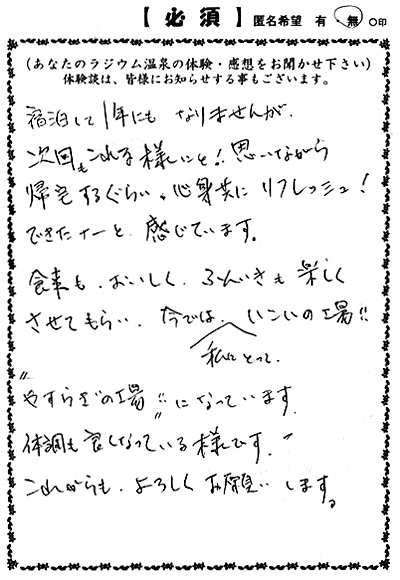 【必須】 匿名希望 有 無 ○印
(あなたのラジウム温泉の体験・感想をお聞かせ下さい)
体験談は、皆様にお知らせする事もございます。
宿泊して1年にも なりませんが、
次回もこれる様にと!思いながら
帰宅するぐらい、心身共に リフレッシュ!
できたナーと 感じています。
食事も、おいしく、ふんいきも 楽しく
させてもらい、今では、いこいの場!!
私にとって、
"やすらぎの場"になっています。
体調も良くなっている様です。
これからも、よろしくお願い します。